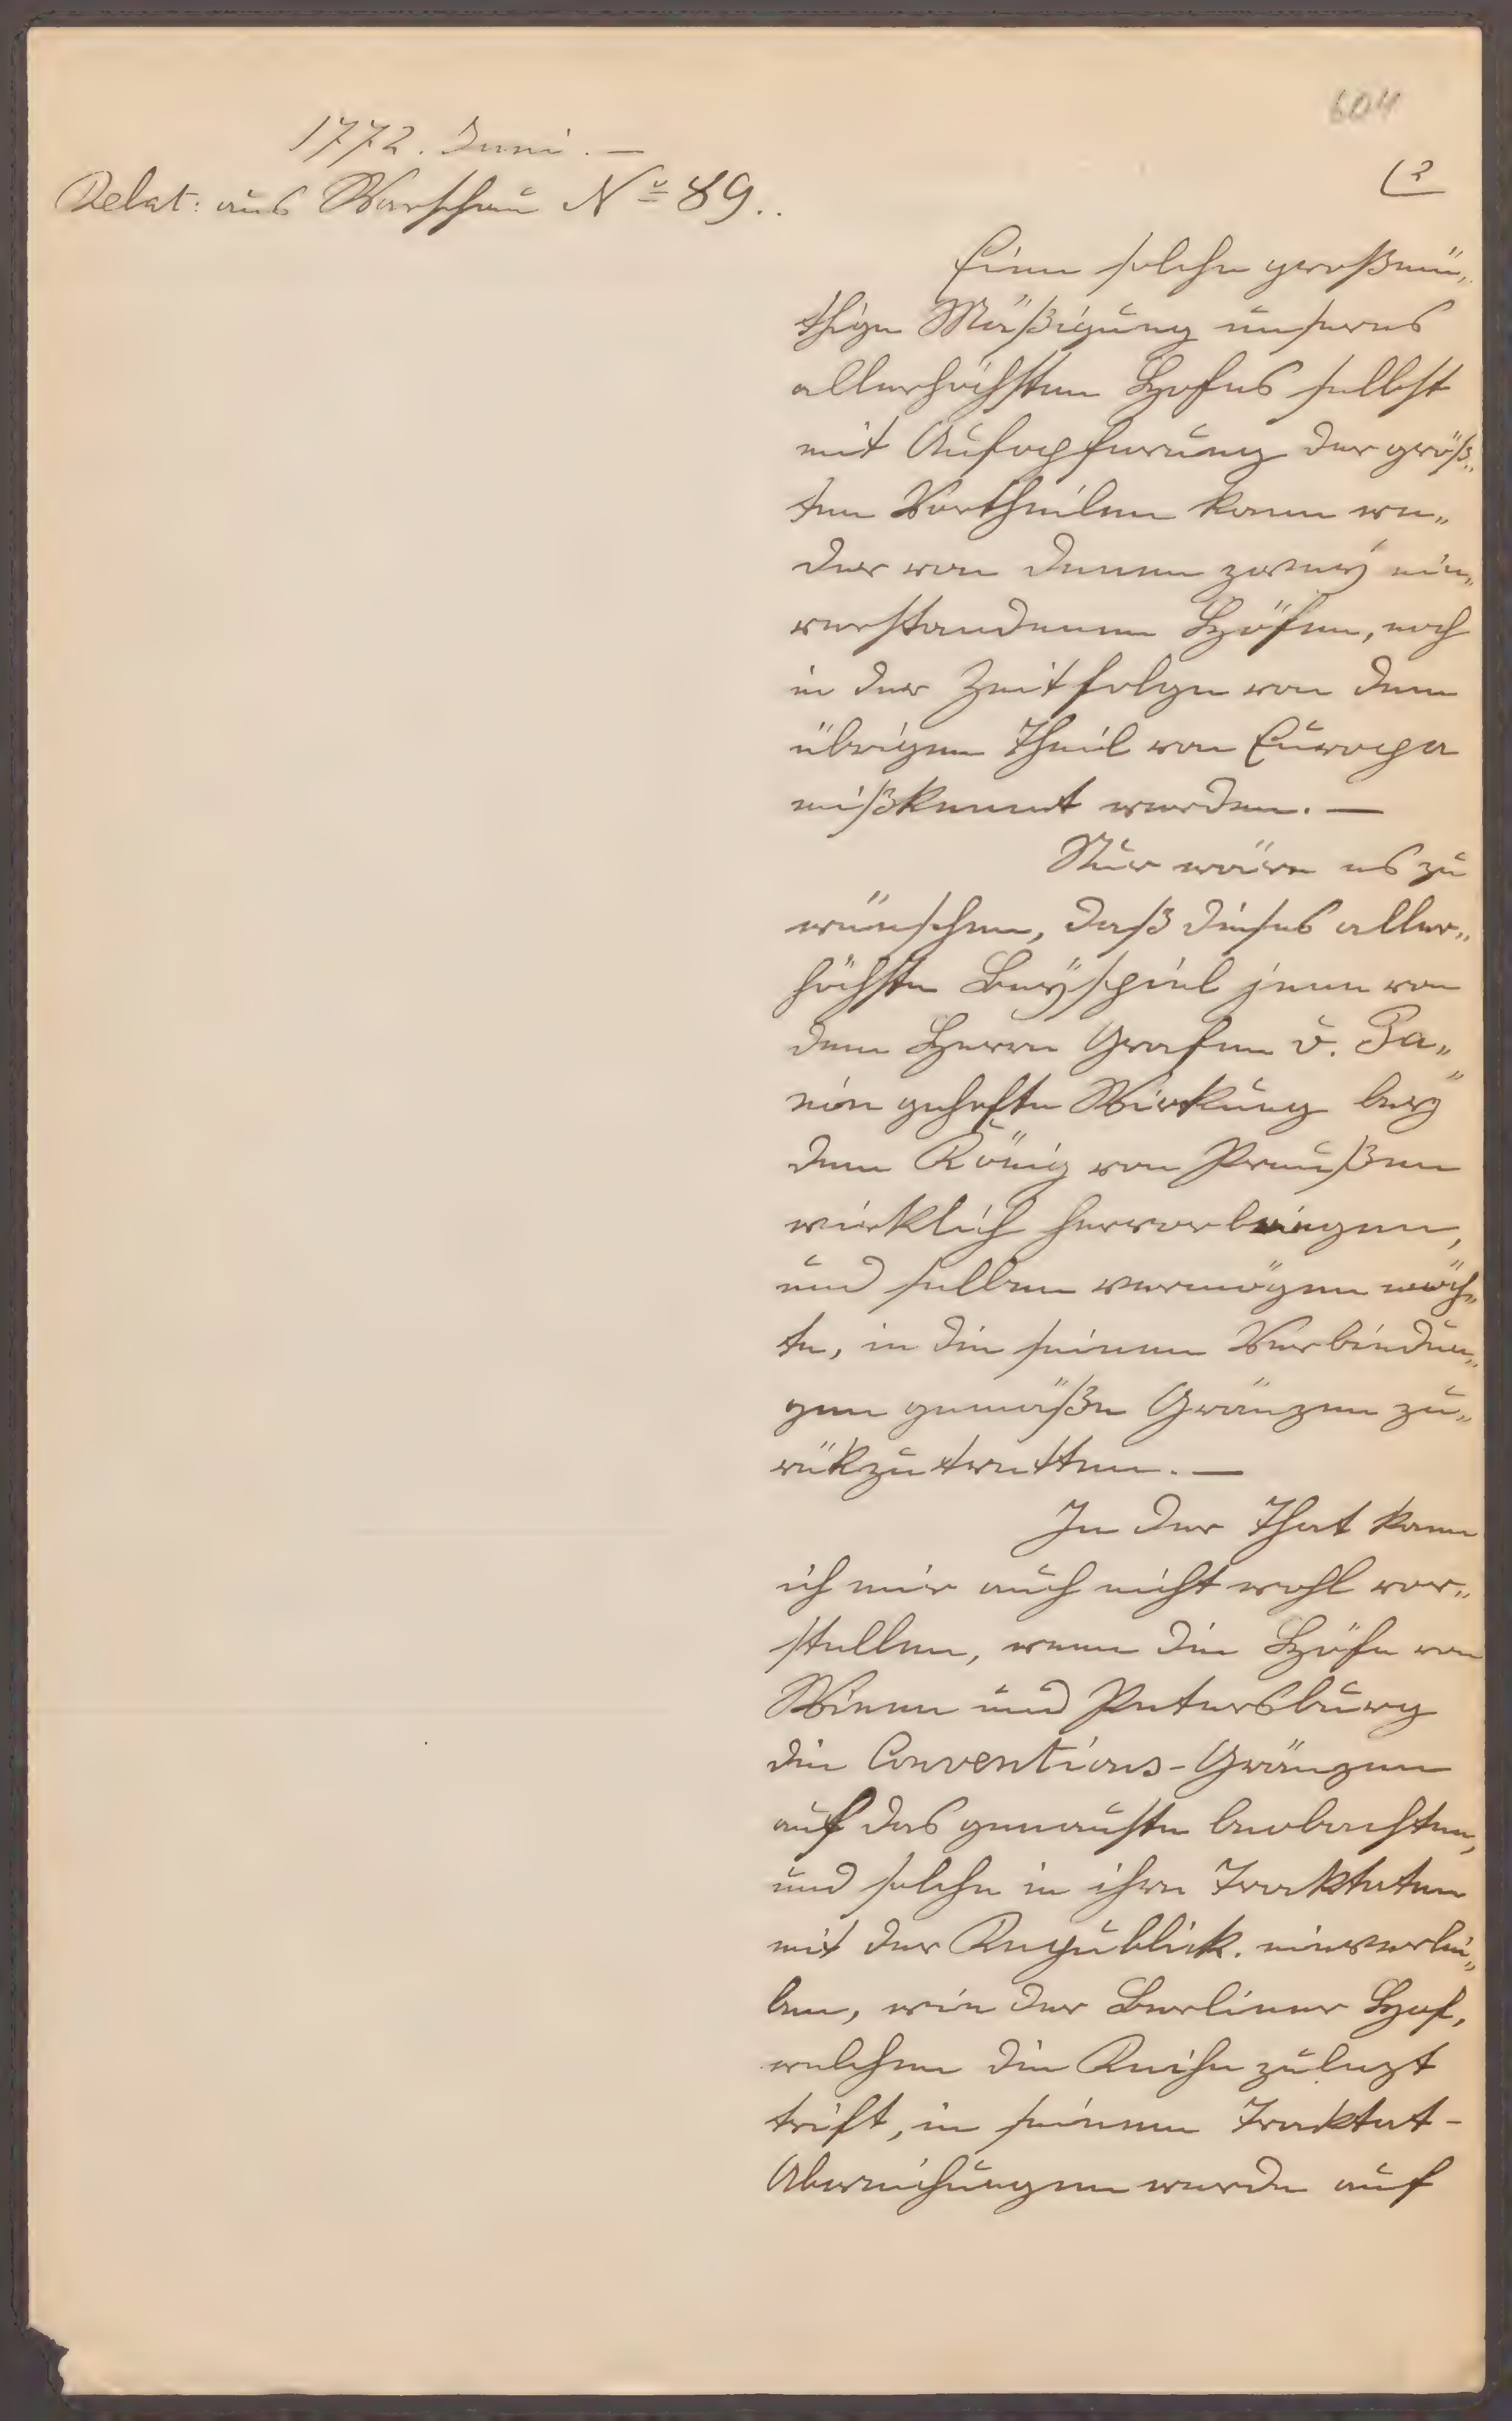 604
1772. Juni. —
(2
Relat: aus Warschau No 89..
Eine solche großmü„
thige Mäßigung unseres
allerhöchsten Hofes selbst
mit Aufopferung der größ„
ten Vortheilen kann we„
der von denen zweÿ ein„
verstandenen Höfen, noch
in der Zeitfolge von dem
übrigen Theil von Europa
mißkennt werden. —
Nur wäre es zu
wünschen, daß dieses aller„
höchste Beÿspiel jene von
dem Herrn Grafen v. Pa„
nin gehofte Wirkung beÿ
dem König von Preußen
wirklich hervorbringen,
und selben vermögen möch„
te, in die seinen Verbindun„
gen gemäße Gränzen zu„
rükzutretten. —
In der That kann
ich mir auch nicht wohl vor„
stellen, wenn die Höfe von
Wienn und Petersburg
die Conventions-Gränzen
auf das genauste beobachten,
und solche in ihre Traktaten
mit der Republick. einverlei„
ben, wie der Berliner Hof,
welchen die Reihe zulezt
trift, in seinem Traktat-
Abweichungen werde auf